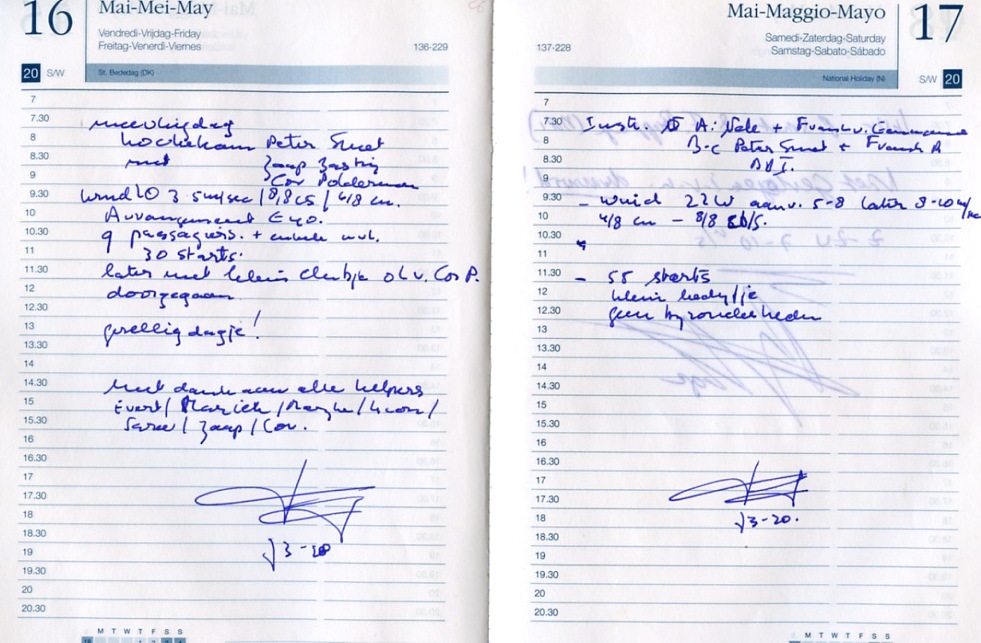 16
Mai-Mei-May
Vendredi-Vrijdag-Friday
Freitag-Venerdi-Viernes
136-229
20 S/W
St. Bededag (DK)
7
7.30 meevliegdag
8 Peter Smet
8.30 met Jaap
9 Cor Polderman
9.30 wind ZO 3 5m/sec / 8/8 cs / 4/8 cu.
10 Arrangement € 40.
10.30 9 passagiers. + enkele
11 30 starts.
11.30 later met klein clubje o l v. Cor P.
12 doorgegaan
12.30
13 gezellig dagje!
13.30
14
14.30 Met dank aan alle helpers
15 Evert /
15.30 / Jaap / Cor.
16
16.30
17
17.30
18
18.30
19 √3-20
19.30
20
20.30
M T W T F S S
17
Mai-Maggio-Mayo
Samedi-Zaterdag-Saturday
Samstag-Sabato-Sábado
137-228
National Holiday (N)
S/W 20
7
7.30 Instr. A: + Frank v.
8 B-C Peter Smet + Frank
8.30 DDI.
9
9.30 - wind ZZW aanv. 5-8 later 8-10 m/sec
10 4/8 cu - 8/8
10.30
11
11.30 - 55 starts
12 klein
12.30 geen byzonderheden
13
13.30
14
14.30
15
15.30
16
16.30
17
17.30
18 √3-20.
18.30
19
19.30
20
20.30
M T W T F S S